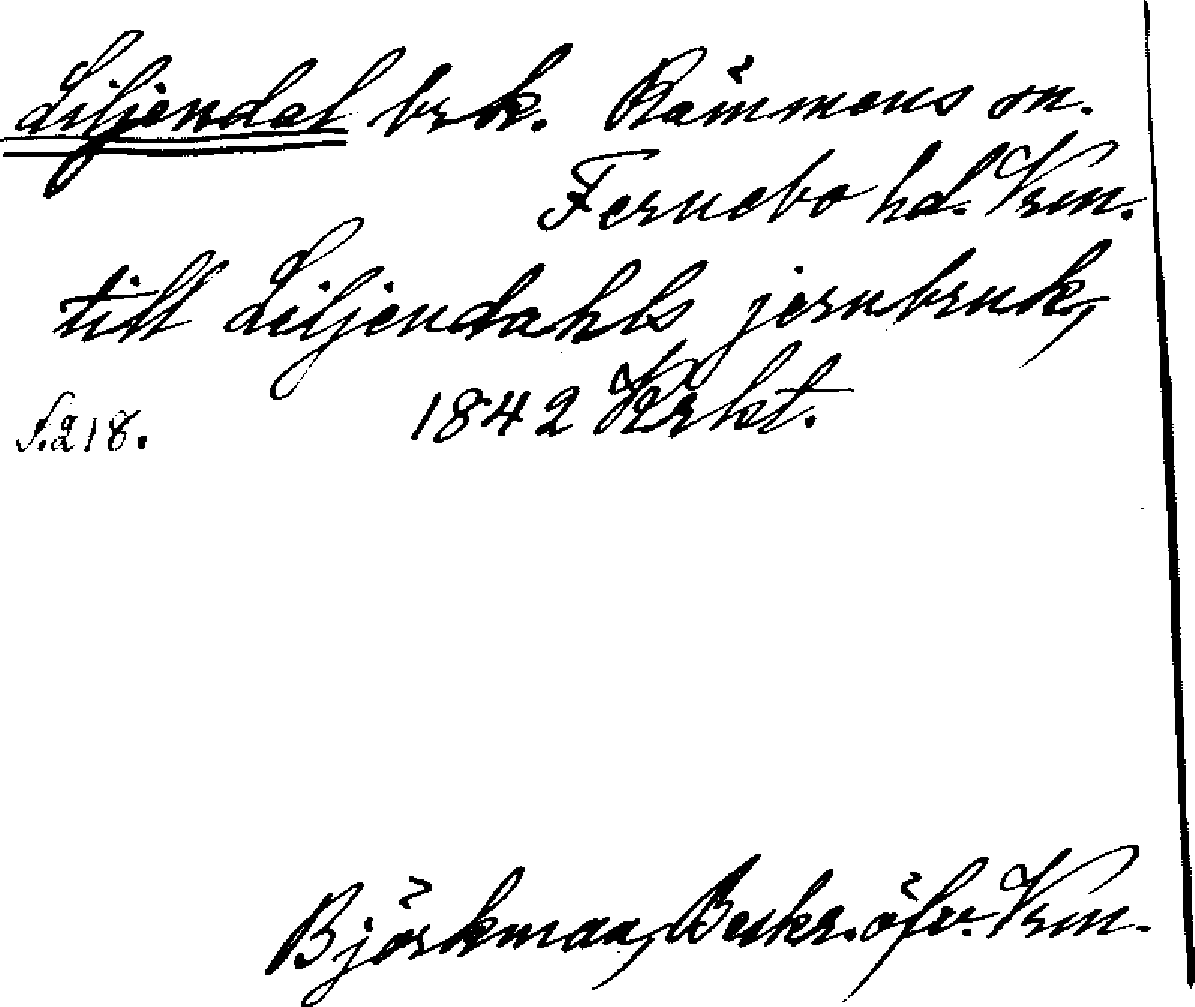 Liljendal brk. Rämmens sn.
Fernebo hd. Vrm.
till Liljendahls jernbruk,
1842 Krkt.
S. 218.
Björkman, Beskr. öfv. Vrm.